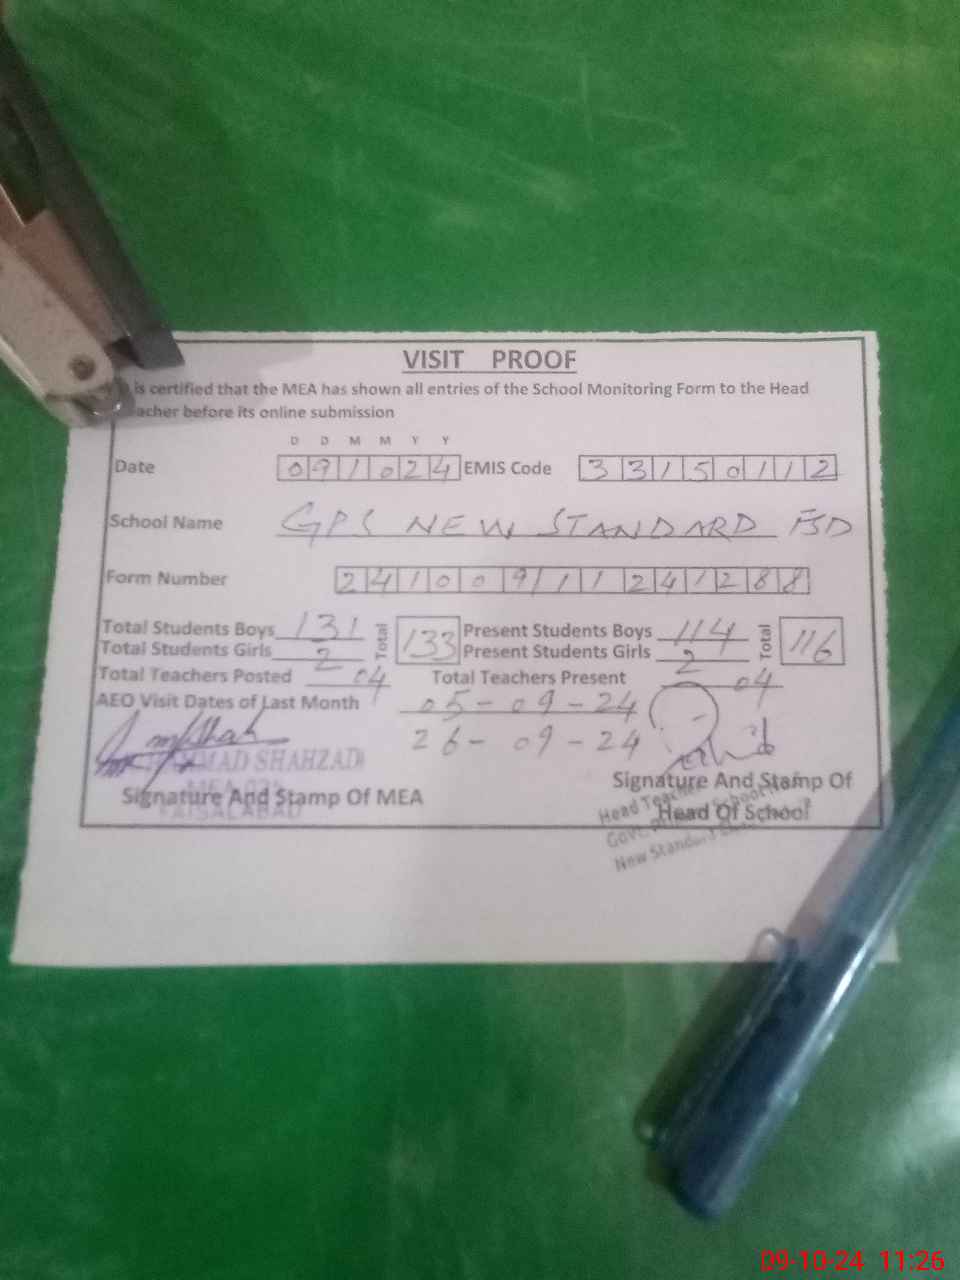 VISIT PROOF
is certified that the MEA has shown all entries of the School Monitoring Form to the Head
acher before its online submission
D D M M Y Y
Date 091024 EMIS Code 33150112
School Name GPS NEW STANDARD FSD
Form Number 24100911241288
Total Students Boys 131 Total 133 Present Students Boys 114 Total 116
Total Students Girls 2 Present Students Girls 2
Total Teachers Posted 04 Total Teachers Present 04
AEO Visit Dates of Last Month 05-09-24
26-09-24
MAD SHAHZAD
Signature And Stamp Of MEA
FAISALABAD
Signature And Stamp Of
Head Of School
Head Teacher
New Standard
09-10-24 11:26